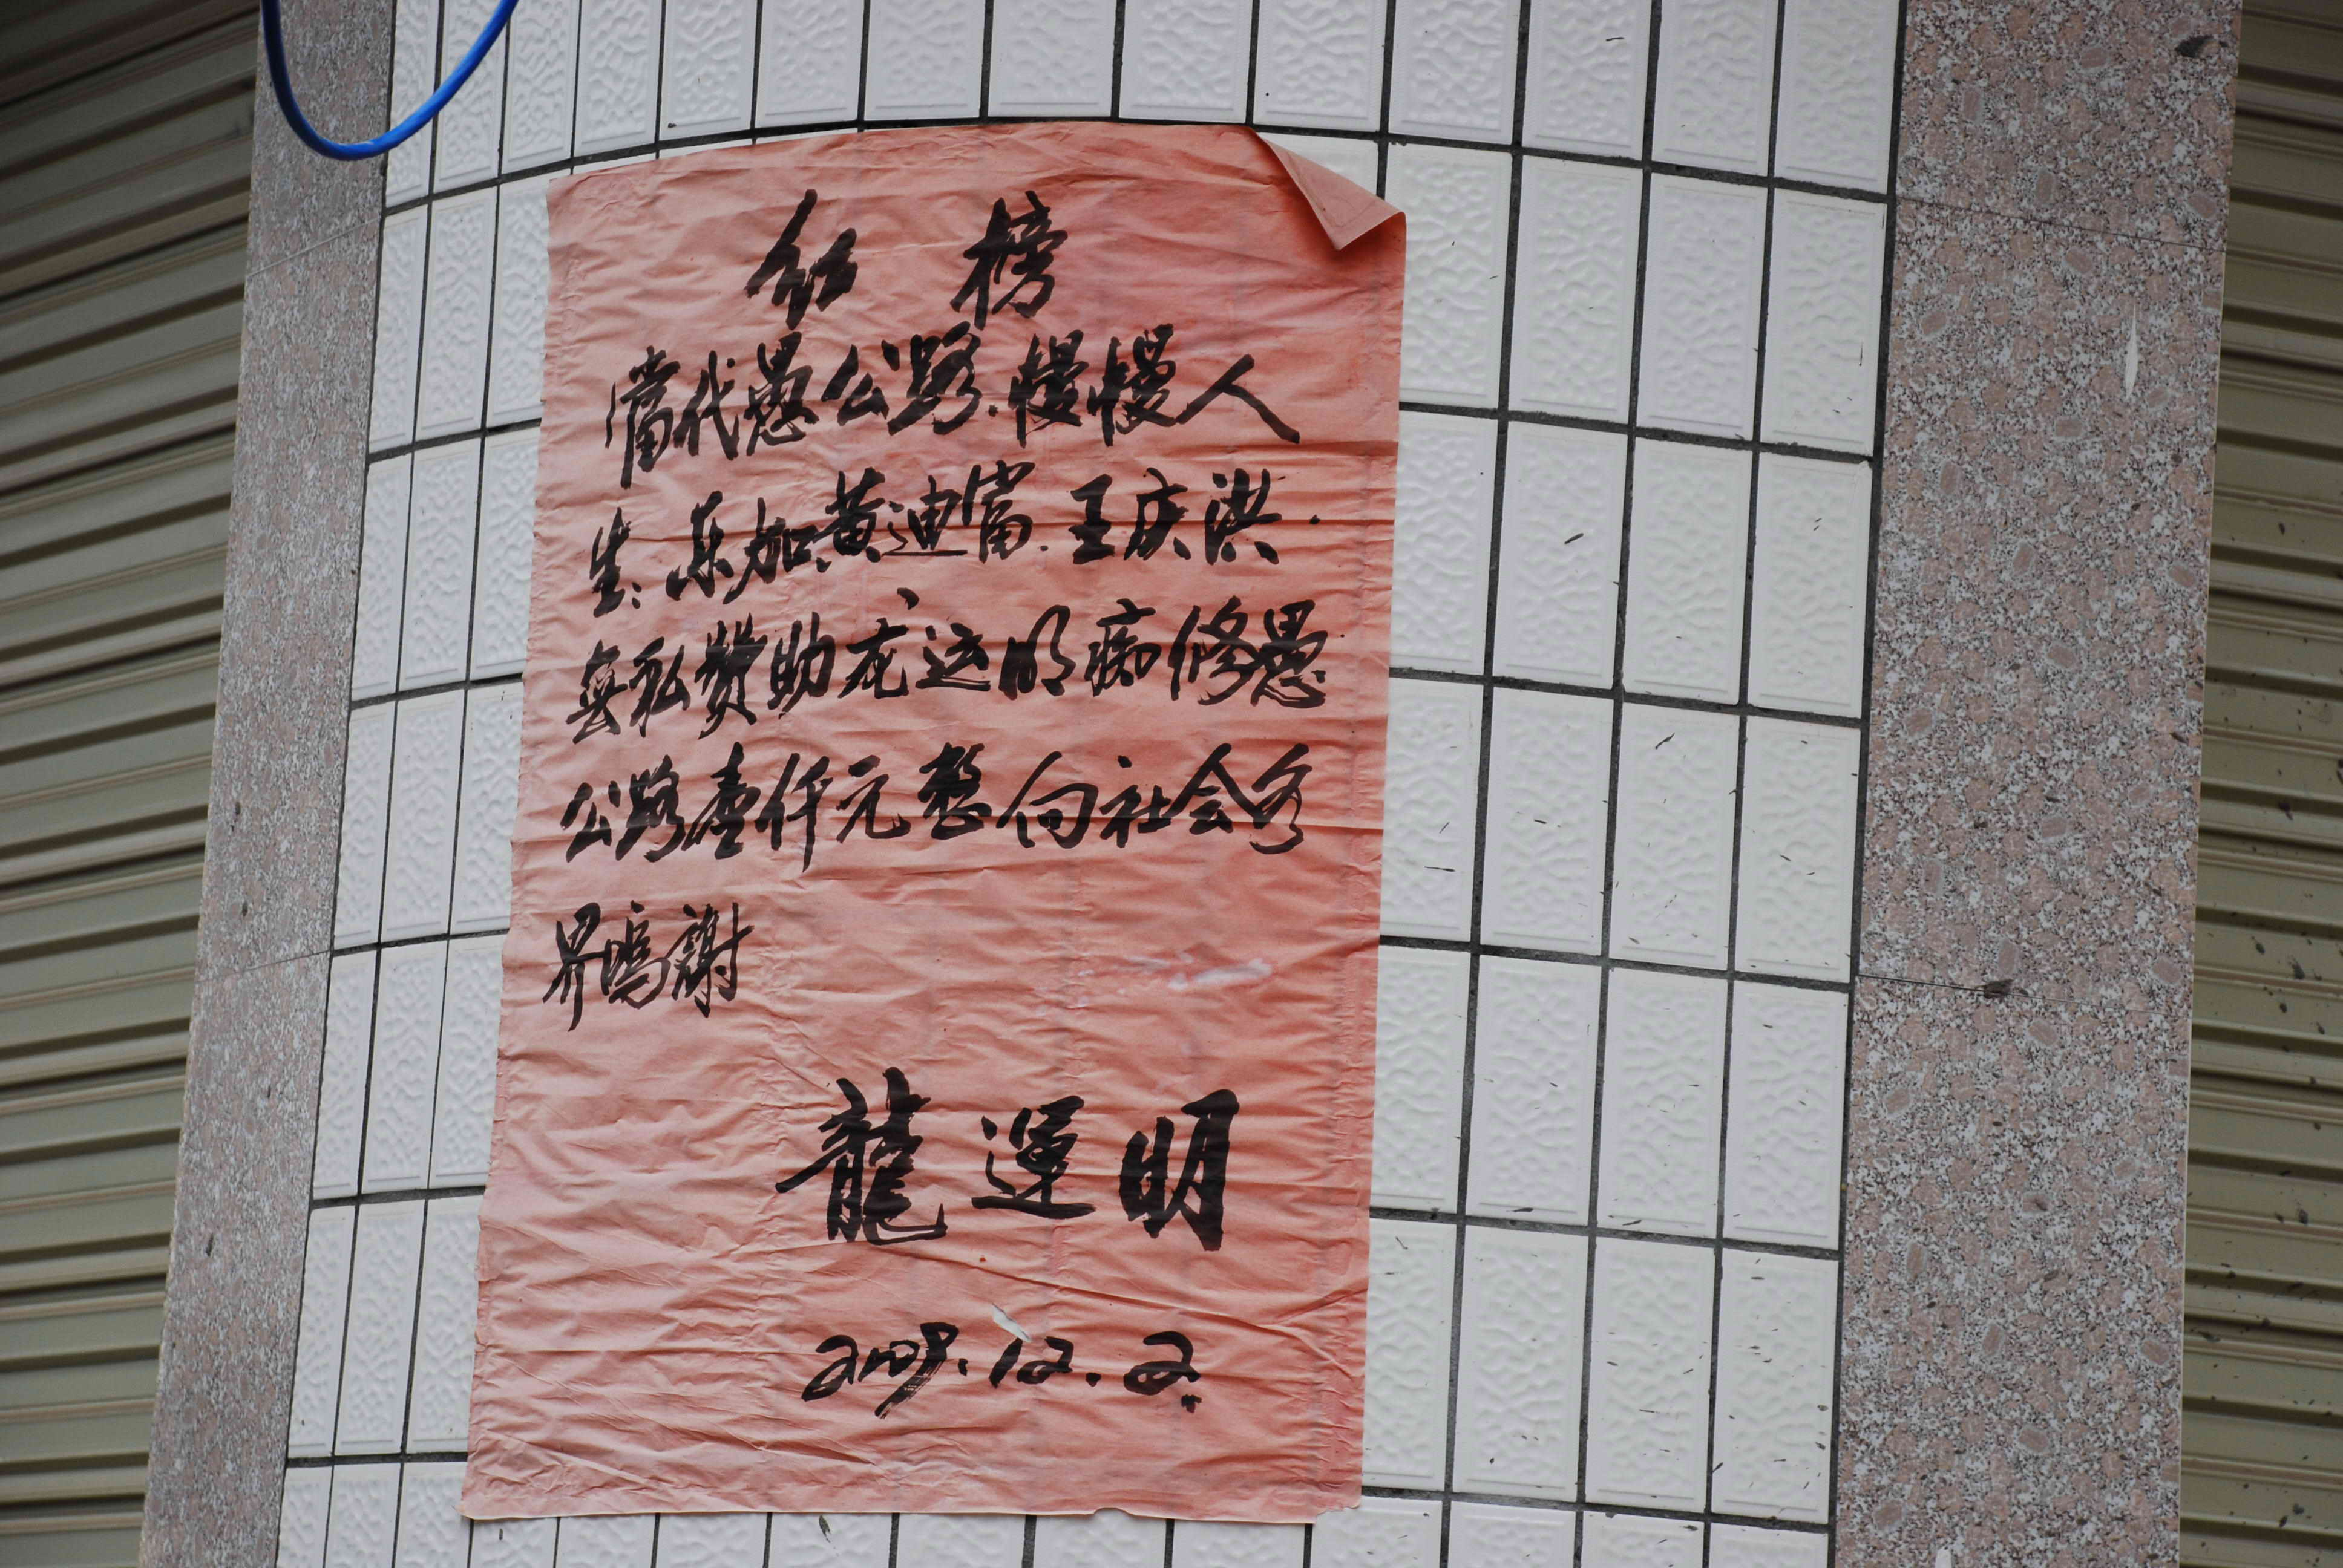 红 榜
當代愚公路.慢慢人
生:乐加黄迪富.王庆洪.
無私赞助龙运明痴修愚
公路壹仟元整向社会各
界鸣謝
龍運明
2008.12.2.